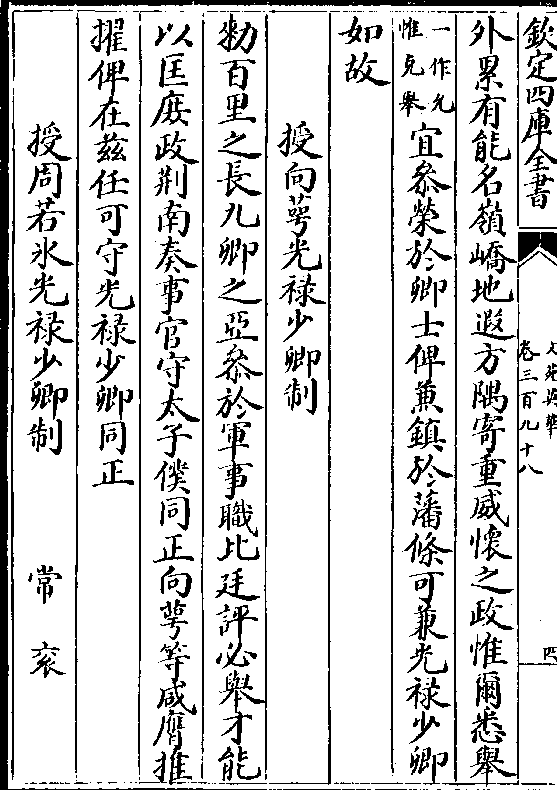 欽定四庫全書
文苑英華
卷三百九十八
四
外累有能名嶺嶠地遐方隅寄重威懷之政惟爾悉舉
一作允惟克舉宜叅榮於卿士俾兼鎮於藩條可兼光禄少卿
如故
授向萼光禄少卿制
勑百里之長九卿之亞叅於軍事職比廷評必舉才能
以匡庶政荆南奏事官守太子僕同正向萼等咸膺推
擢俾在兹任可守光禄少卿同正
授周若氷光禄少卿制 常衮